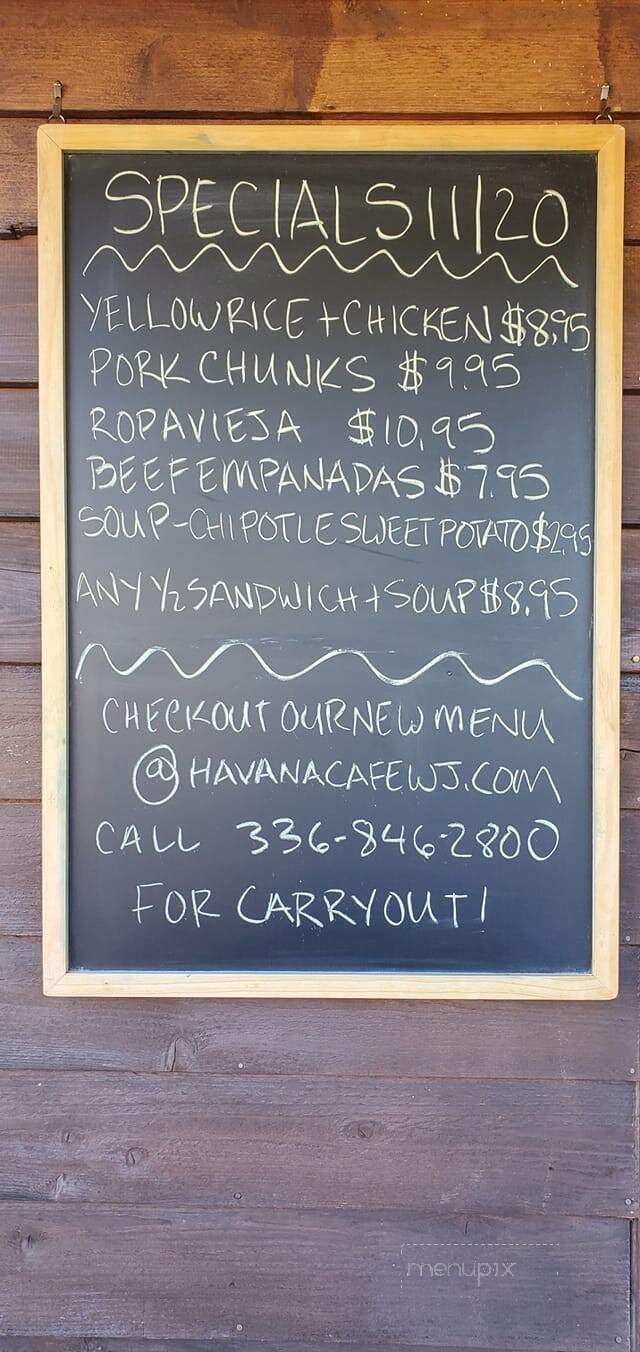 SPECIALS 11/20
YELLOW RICE + CHICKEN $8.95
PORK CHUNKS $9.95
ROPA VIEJA $10.95
BEEF EMPANADAS $7.95
SOUP-CHIPOTLE SWEET POTATO $2.95
ANY ½ SANDWICH + SOUP $8.95
CHECKOUT OUR NEW MENU
@HAVANACAFEWJ.COM
CALL 336-846-2800
FOR CARRYOUT!
menupix